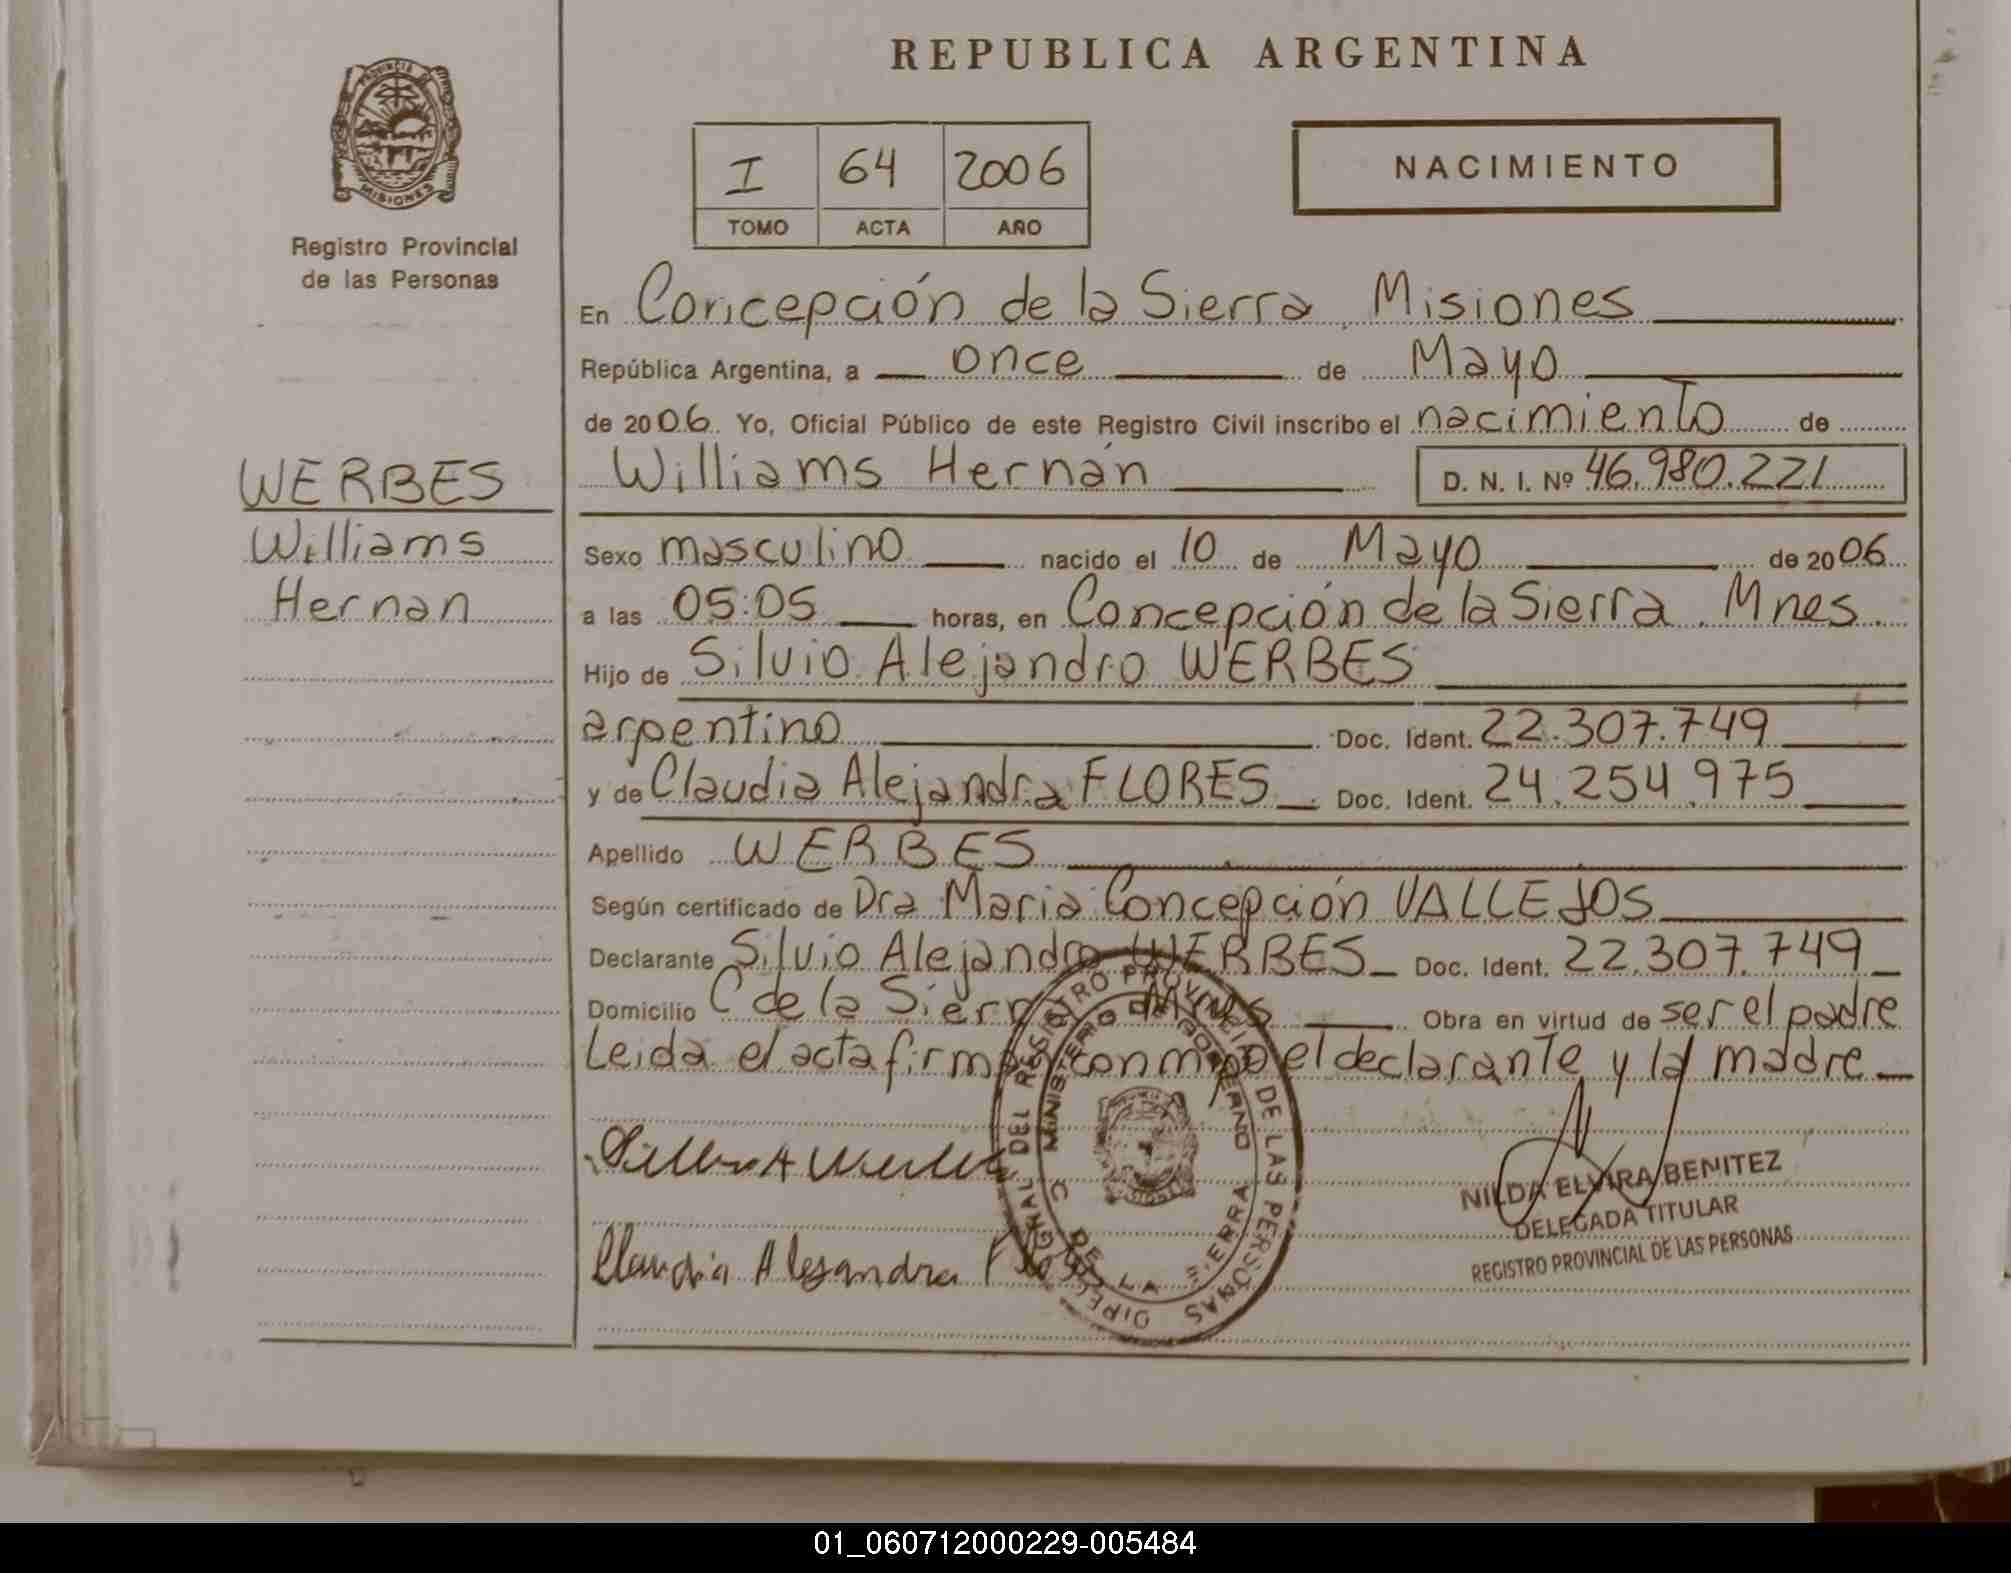 REPUBLICA ARGENTINA
PROVINCIA DE MISIONES
Registro Provincial
de las Personas
I 64 2006
TOMO ACTA AÑO
NACIMIENTO
WERBES
Williams
Hernan
En Concepción de la Sierra, Misiones
República Argentina, a once de Mayo
de 2006. Yo, Oficial Público de este Registro Civil inscribo el nacimiento de
Williams Hernán D. N. I. Nº 46.980.221
Sexo masculino nacido el 10 de Mayo de 2006
a las 05:05 horas, en Concepción de la Sierra. Mnes.
Hijo de Silvio Alejandro WERBES
argentino Doc. Ident. 22.307.749
y de Claudia Alejandra FLORES Doc. Ident. 24.254.975
Apellido WERBES
Según certificado de Dra Maria Concepción VALLEJOS
Declarante Silvio Alejandro WERBES Doc. Ident. 22.307.749
Domicilio C de la Sierra Mnes Obra en virtud de ser el padre
Leida el acta firman conmigo el declarante y la madre
Claudia Alejandra
DIRECC. GRAL DEL REGISTRO PROVINCIAL DE LAS PERSONAS
MINISTERIO DE GOBIERNO
C. DE LA SIERRA
NILDA ELVIRA BENITEZ
DELEGADA TITULAR
REGISTRO PROVINCIAL DE LAS PERSONAS
01_060712000229-005484